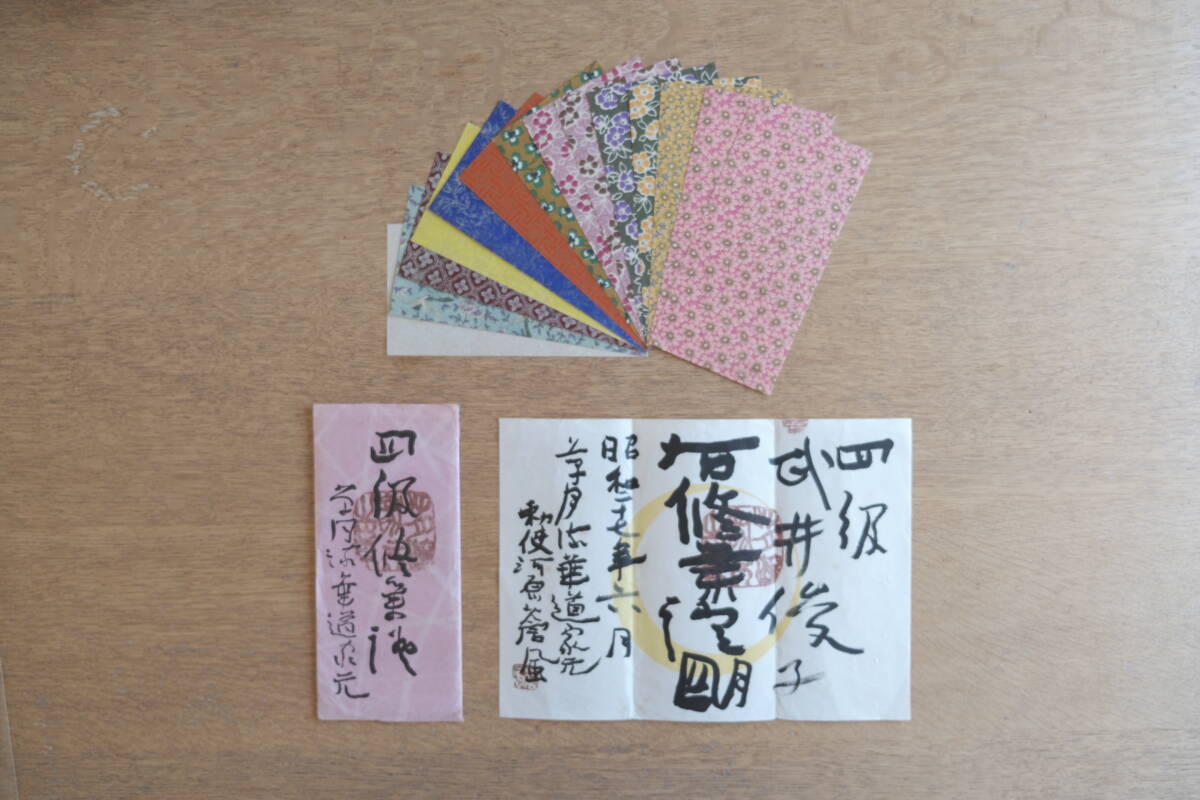 四級修業證
草月流華道家元
四級
武井俊子
右修業證明
昭和二十七年六月
草月流華道家元
勅使河原蒼風